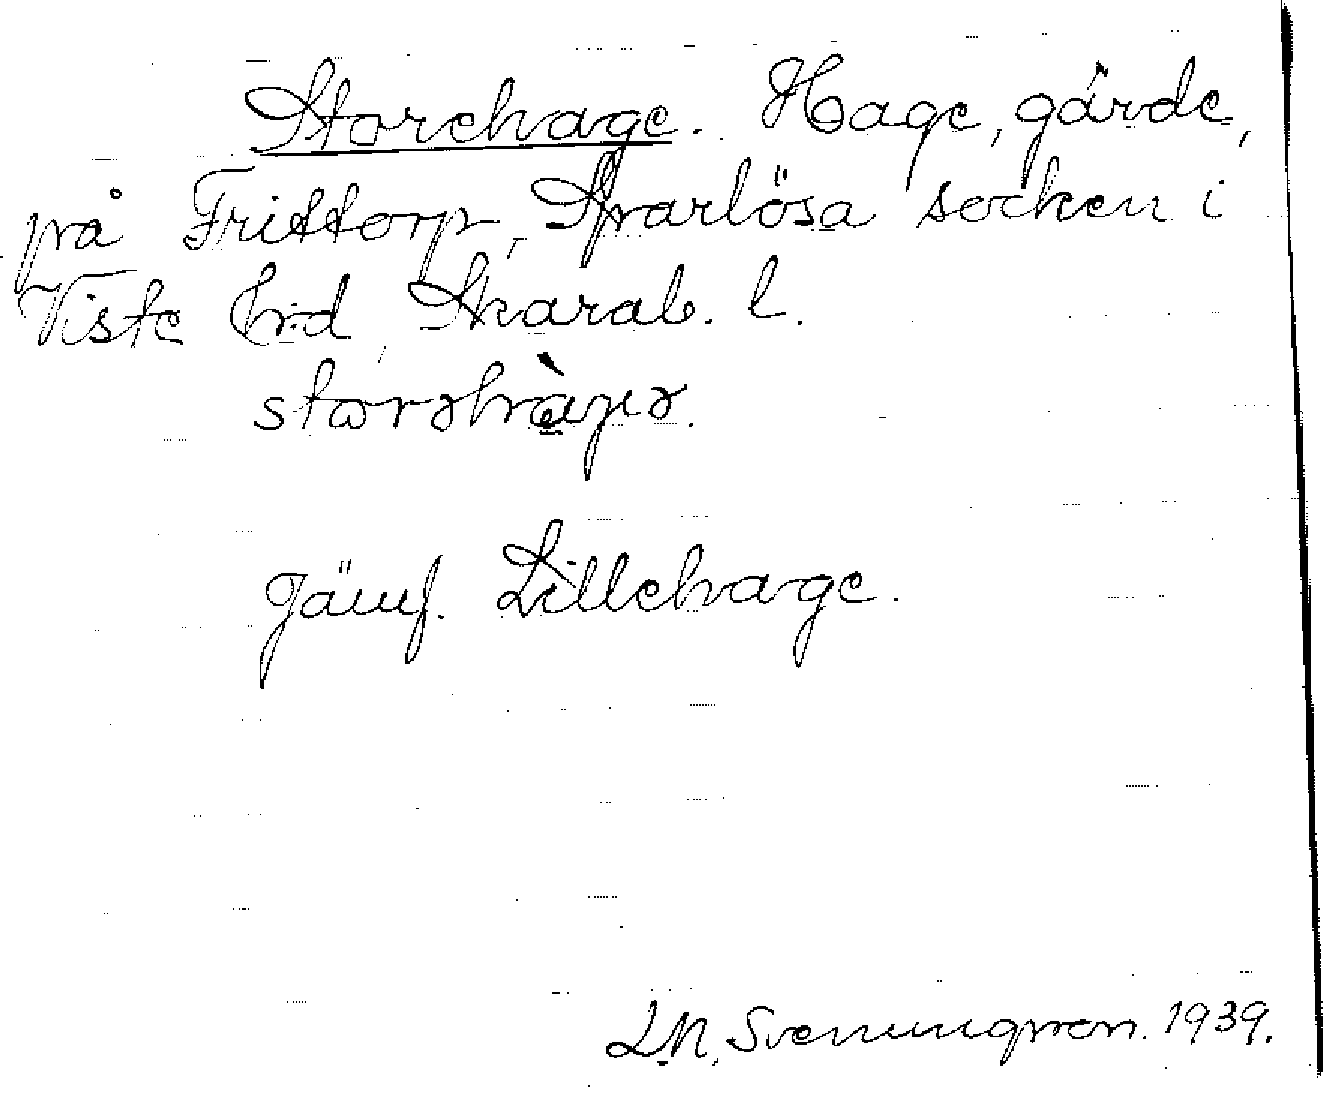 Storehage. Hage, gärde,
på Frittorp, Sparlösa socken i
Viste hd, Skarab. l.
storəhàgə.
Jämf. Lillehage.
L.N. Svenungsson. 1939.